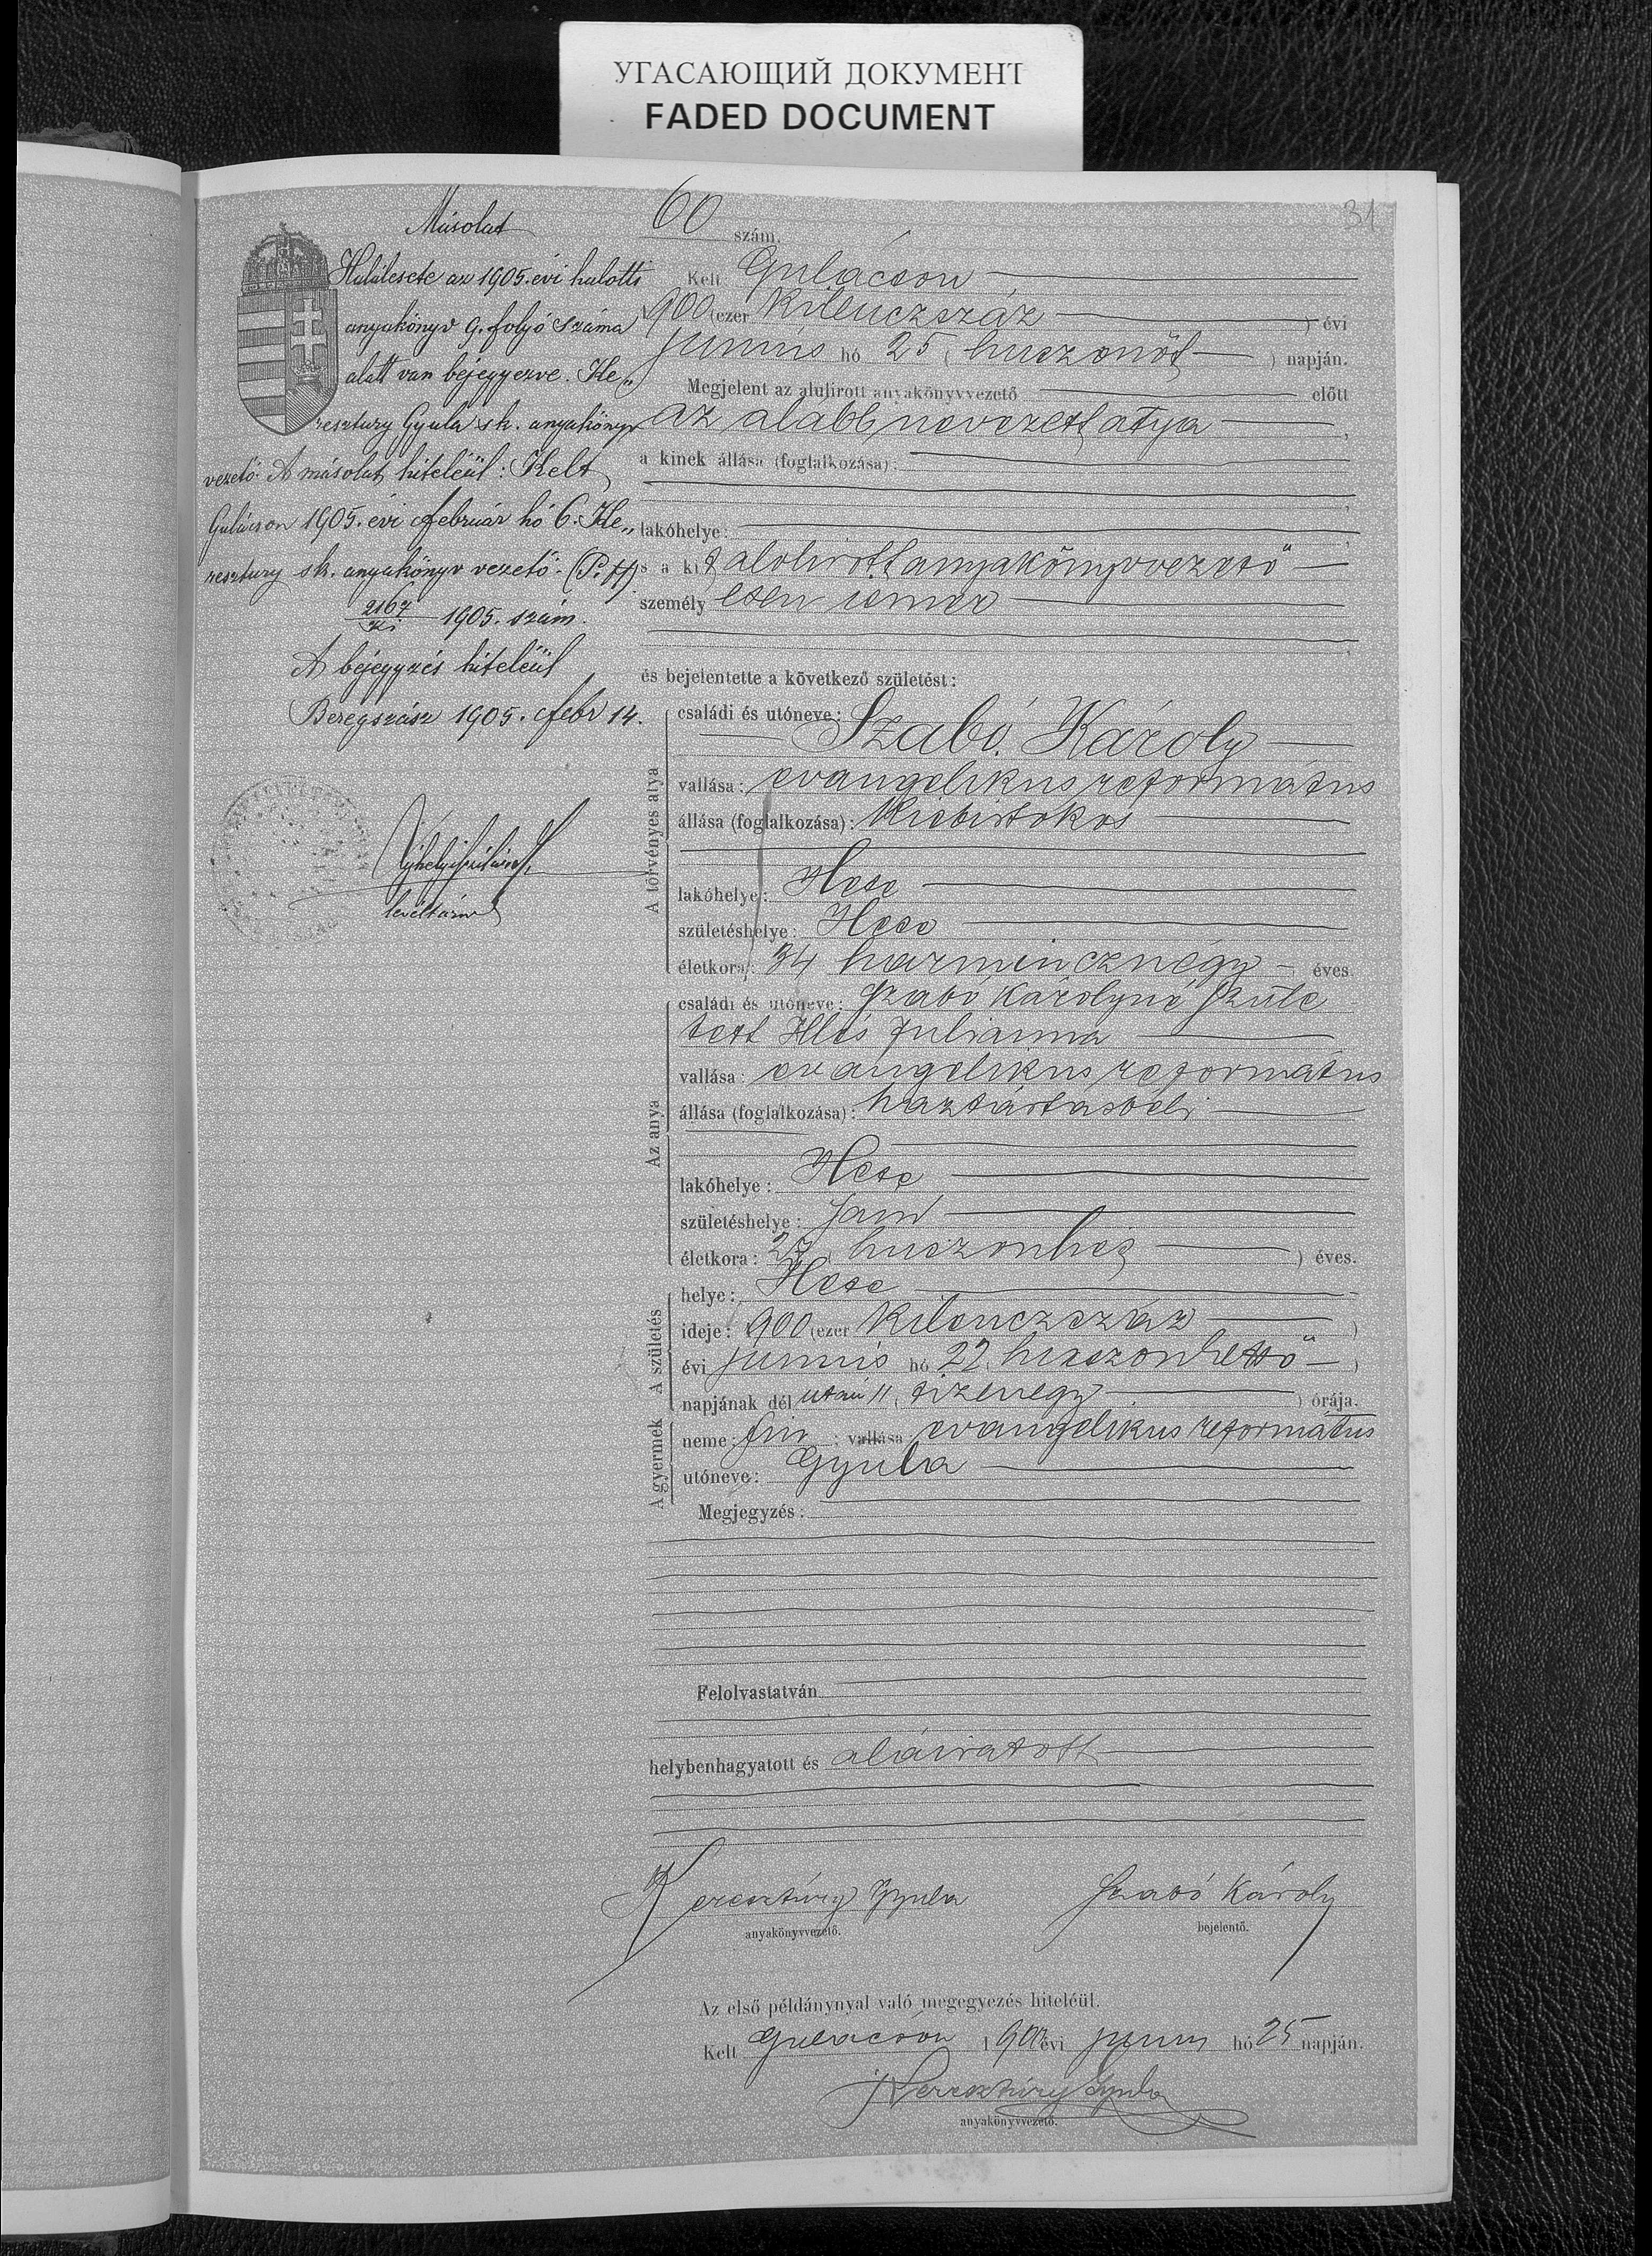 УГАСАЮЩИЙ ДОКУМЕНТ
FADED DOCUMENT
31
Másolat
Halálesete az 1905. évi halotti
anyakönyv 9. folyó száma
alatt van bejegyezve. Ke„
resztury Gyula sk. anyakönyv
vezető. A másolat hiteléül: Kelt
Gulácson 1905. évi február hó 6. Ke„
resztury sk. anyakönyv vezető. (P. H)
2167 1905. szám.
A bejegyzés hiteléül
Beregszász 1905. febr 14.
levéltárnok
60 szám.
Kelt Gulácson
1900 (ezer kilenczszáz ) évi
junius hó 25 (huszonöt ) napján.
Megjelent az alulirott anyakönyvvezető előtt
az alább nevezett atya
a kinek állása (foglalkozása):
lakóhelye:
s a kit alolirott anyakönyvvezető
személy esen ismer
és bejelentette a következő születést:
A törvényes atya
családi és utóneve:
Szabó Károly
vallása: evangelikus református
állása (foglalkozása): kisbirtokos
lakóhelye: Hete
születéshelye: Hete
életkora: 34 harmincznégy éves.
Az anya
családi és utóneve: Szabó Károlyné szüle
tett Illés Julianna
vallása: evangelikus református
állása (foglalkozása): háztartásbeli
lakóhelye: Hete
születéshelye: Jánd
életkora: 27 (huszonhét ) éves.
A születés
helye: Hete
ideje: 1900 (ezer kilenczszáz )
évi junius hó 22 (huszonkettő )
napjának dél után 11 (tizenegy ) órája.
A gyermek
neme: fiu ; vallása: evangelikus református
utóneve: Gyula
Megjegyzés:
Felolvastatván
helybenhagyatott és aláiratott
Keresztúry Gyula
anyakönyvvezető.
Szabó Károly
bejelentő.
Az első példánynyal való megegyezés hiteléül.
Kelt Gulácson 1900 évi junius hó 25 napján.
Keresztúry Gyula
anyakönyvvezető.